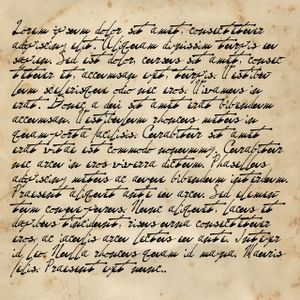 Lorem ipsum dolor sit amet, consectetuer
adipiscing elit. Aliquam dignissim turpis eu
sapien. Sed est dolor, cursus sit amet, consec
tetuer et, accumsan eget, turpis. Vestibu
lum scelerisque odio nec eros. Vivamus in
erat. Donec a dui sit amet erat bibendum
accumsan. Vestibulum rhoncus metus in
quam porta facilisis. Curabitur sit amet
erat vitae est commodo nonummy. Curabitur
nec arcu in eros viverra dictum. Phasellus
adipiscing metus ac augue bibendum interdum.
Praesent aliquet ante in arcu. Sed elemen
tum congue purus. Nunc aliquet, lacus et
dapibus tincidunt, risus urna consectetuer
eros, ac iaculis arcu lectus eu ante. Integer
id leo. Nulla rhoncus quam id magna. Mauris
felis. Praesent eget nunc..